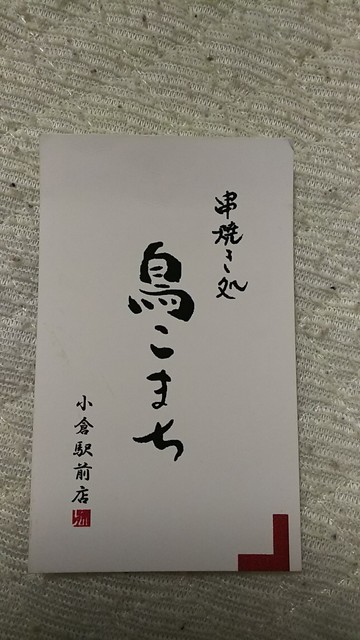 串焼き処
鳥こまち
小倉駅前店